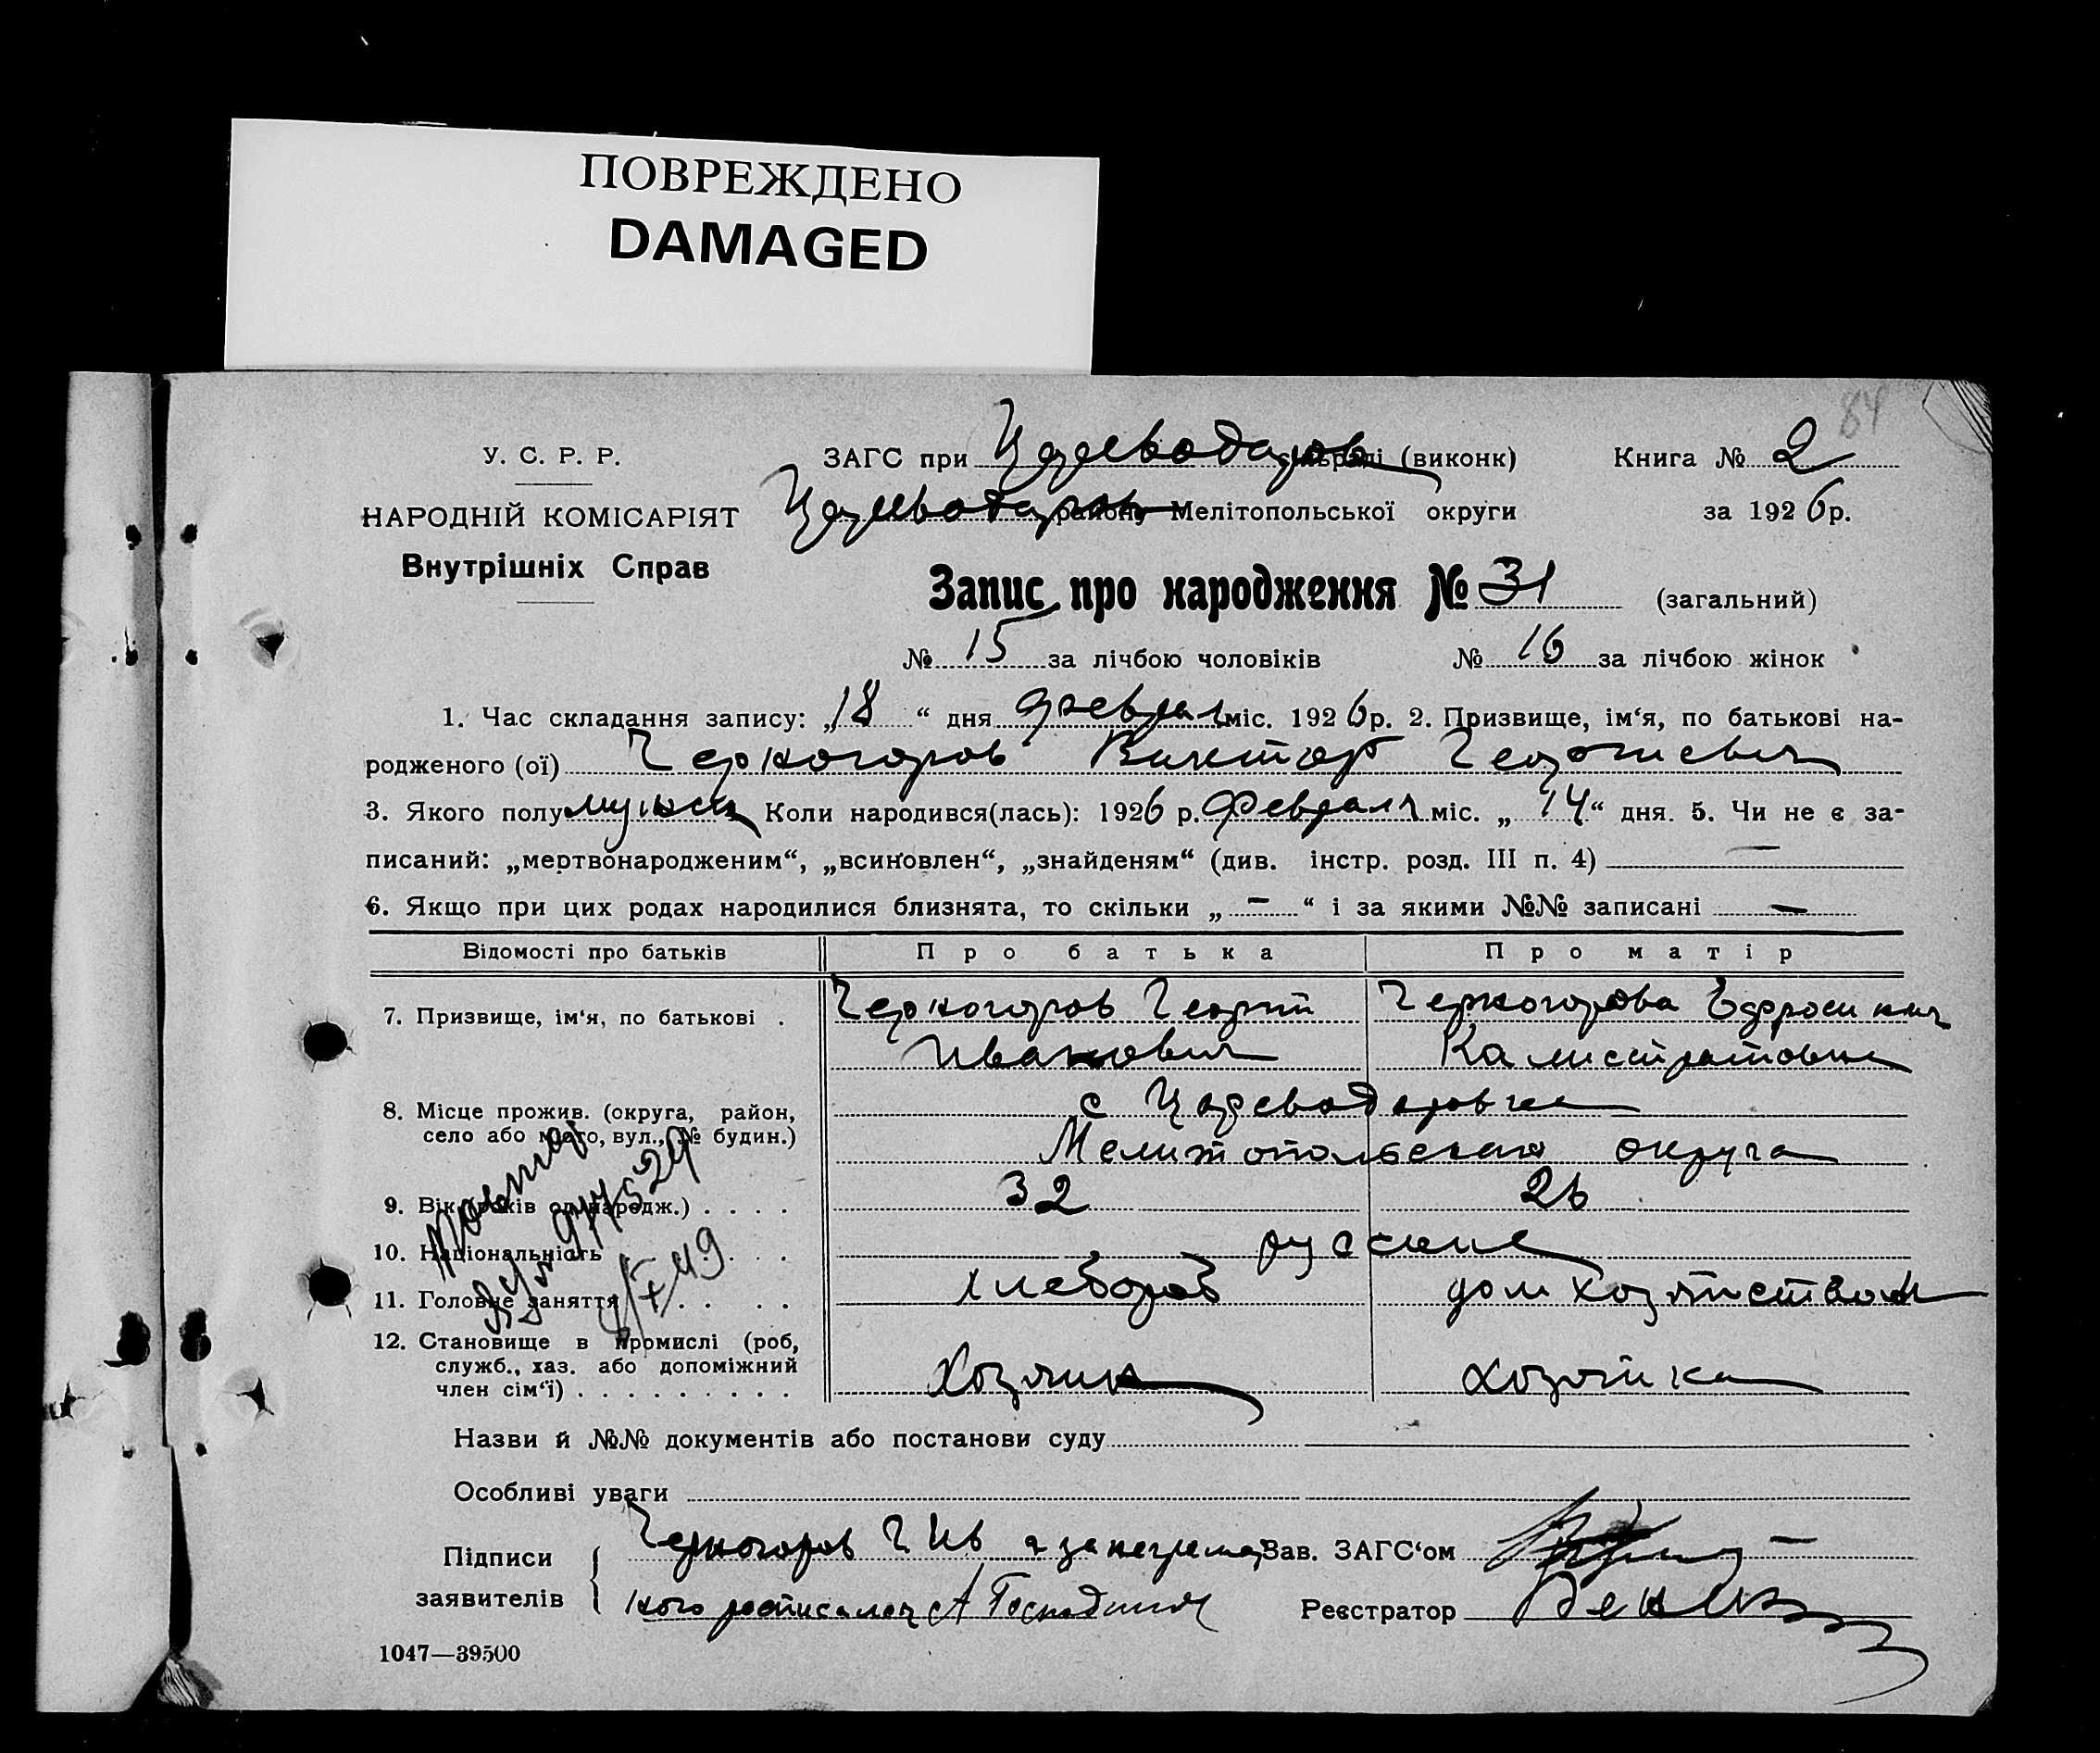 ПОВРЕЖДЕНО
DAMAGED
84
У. С. Р. Р.
ЗАГС при Цареводаров сільраді (виконк)
Книга № 2
НАРОДНІЙ КОМІСАРІЯТ
Цареводаров району Мелітопольської округи
за 1926 р.
Внутрішніх Справ
Запис про народження № 31 (загальний)
№ 15 за лічбою чоловіків № 16 за лічбою жінок
1. Час складання запису: „18“ дня февраля міс. 1926 р. 2. Призвище, ім‘я, по батькові на-
родженого (ої) Черногоров Виктор Георгиевич
3. Якого полу мужск Коли народився(лась): 1926 р. Февраля міс. „14“ дня. 5. Чи не є за-
писаний: „мертвонародженим“, „всиновлен“, „знайденям“ (див. інстр. розд. III п. 4) —
6. Якщо при цих родах народилися близнята, то скільки „ – “ і за якими №№ записані —
Відомості про батьків Про батька Про матір
7. Призвище, ім‘я, по батькові . Черногоров Георгий Черногорова Ефросиния
Иванович Калистратовна
8. Місце прожив. (округа, район, с Цареводаровка
село або місто, вул., № будин.) Мелитопольского округа
9. Вік (років од народж.) . . . . 32 26
10. Національність . . . русские
11. Головне заняття . . . . хлебороб дом хозяйством
12. Становище в промислі (роб,
служб., хаз. або допоміжний
член сім‘ї) . . . . . . . . . Хозяин хозяйка
Назви й №№ документів або постанови суду
Особливі уваги
Підписи заявителів { Черногоров Г Ив а за неграмот
ного росписался А Господинов
Зав. ЗАГС‘ом
Реєстратор
1047—39500